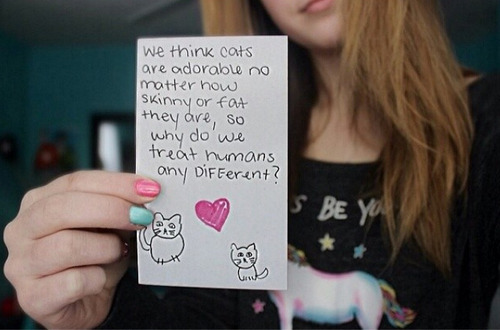 we think cats
are adorable no
matter how
skinny or fat
they are, so
why do we
treat humans
any DiFFerent?
S BE YO